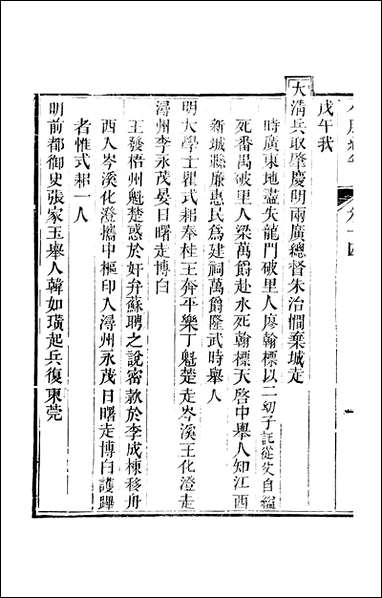 戊午我
大清兵取肇慶明兩廣總督朱治憪棄城走
時廣東地盡失龍門破里人廖翰標以二幼子託從父自縊
死番禺破里人梁萬爵赴水死翰標天啓中舉人知江西
新城縣廉惠民爲建祠萬爵隆武時舉人
明大學士瞿式耜奉桂王奔平樂丁魁楚走岑溪王化澄走
潯州李永茂晏日曙走博白
王發梧州魁楚惑於奸弁蘇聘之說密款於李成棟移舟
西入岑溪化澄攜中樞印入潯州永茂日曙走博白護蹕
者惟式耜一人
明前都御史張家玉舉人韓如璜起兵復東莞